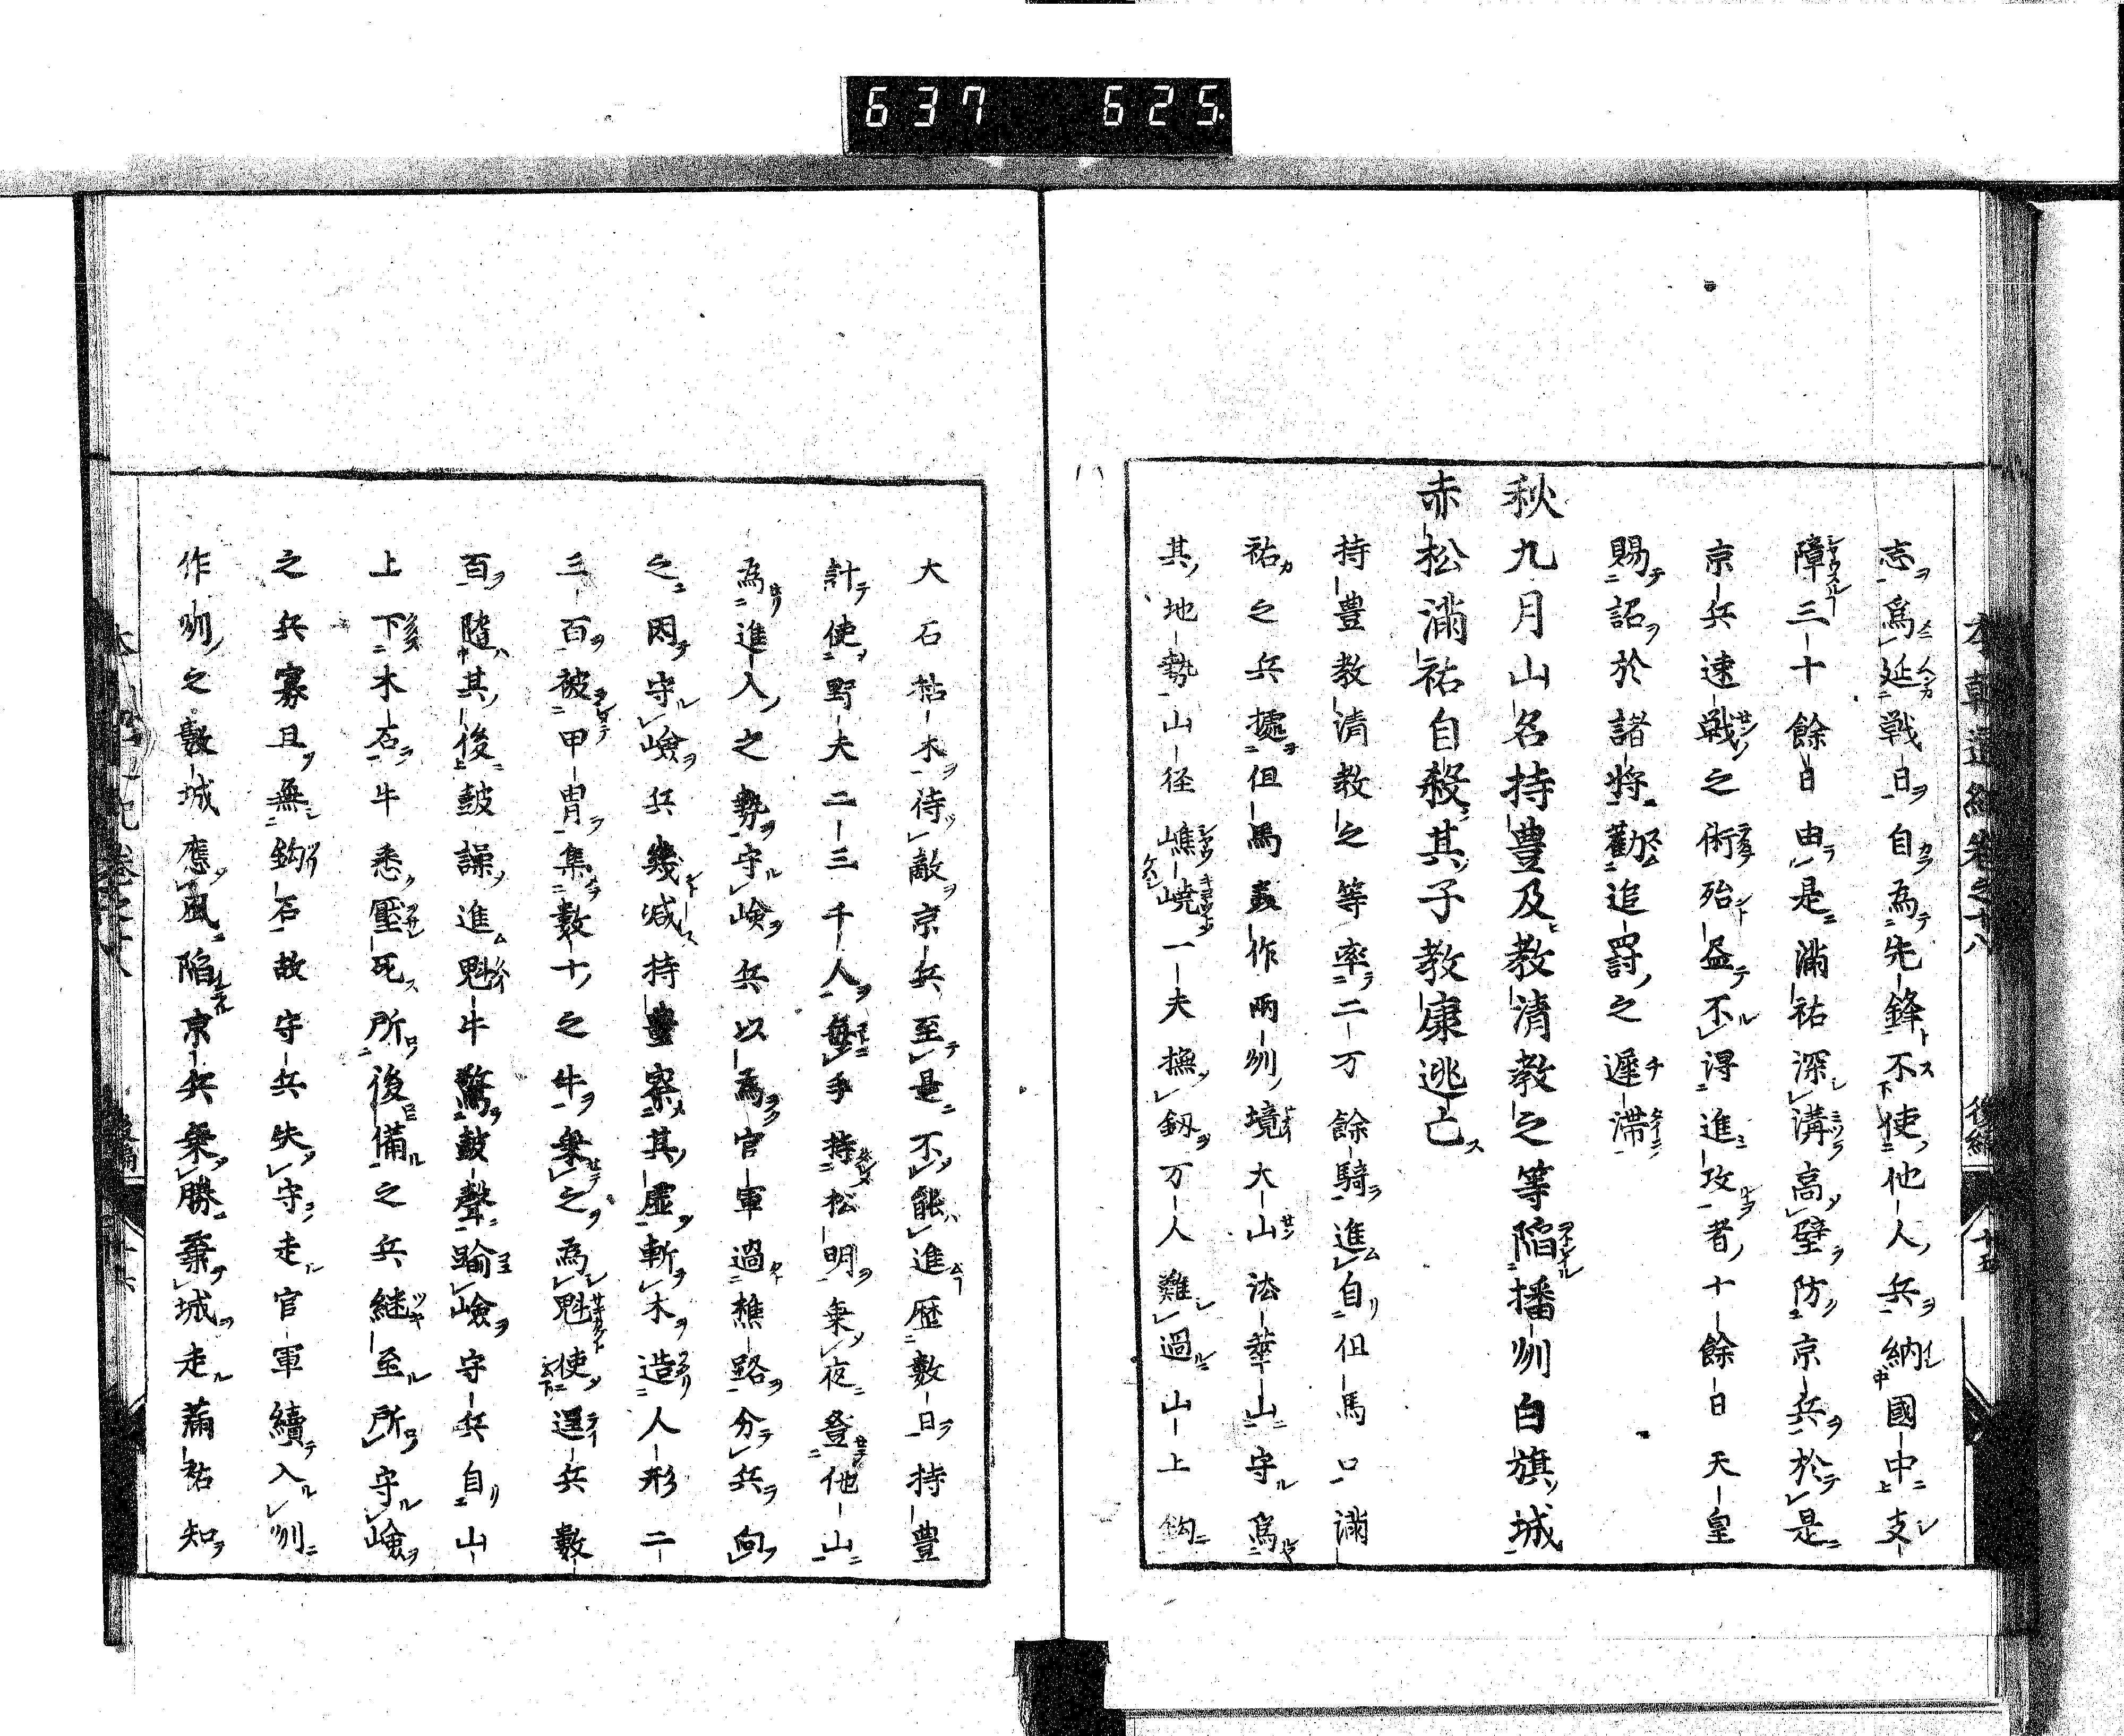 637 625
志為延戦日自為先鋒不使他人兵納國中支
障三十餘日由是満祐深溝高壁防京兵於是
京兵速戦之術殆盡不得進攻者十餘日天皇
賜詔於諸将勸追罸之遲滞
秋九月山名持豊及教清教之等陷播州白旗城
赤松満祐自殺其子教康逃亡
持豊教清教之等率二万餘騎進自但馬口満
祐之兵據但馬美作兩州境大山法華山守焉
其地勢山径嶕嶢一夫撫釼万人難過山上鈎
大石枯木待敵京兵至是不能進歴數日持豊
計使野夫二三千人毎手持松明乗夜登他山
為進入之勢守嶮兵以為官軍過樵路分兵向
之因守嶮兵幾減持豊察其虚斬木造人形二
三百被甲冑集數十之牛乗之為魁使逞兵數
百隨其後鼓譟進魁牛驚鼓聲踰嶮守兵自山
上下木石牛悉壓死所後備之兵継至所守嶮
之兵寡且無鈎石故守兵失守走官軍續入州
作州之數城應風陷京兵乗勝棄城走満祐知